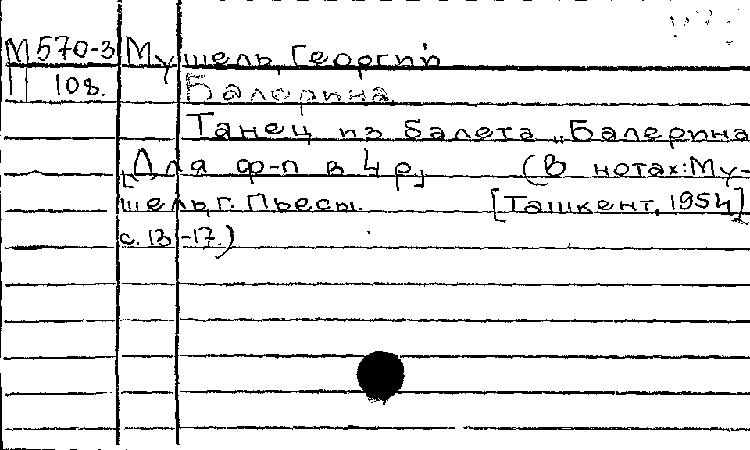 М570-3 Мушель, Георгий
П 108. Балерина
Танец из балета „Балерина
[Для ф-п в 4 р] (В нотах: Му-
шель, Г. Пьесы. [Ташкент, 1954]
с. 13-17.)